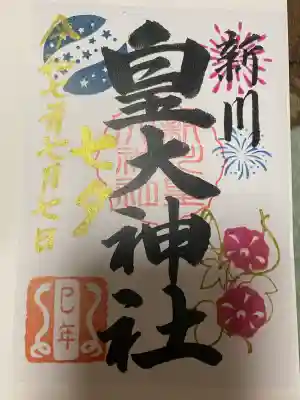 新川
皇大神社
七夕
令和七年七月七日
巳年